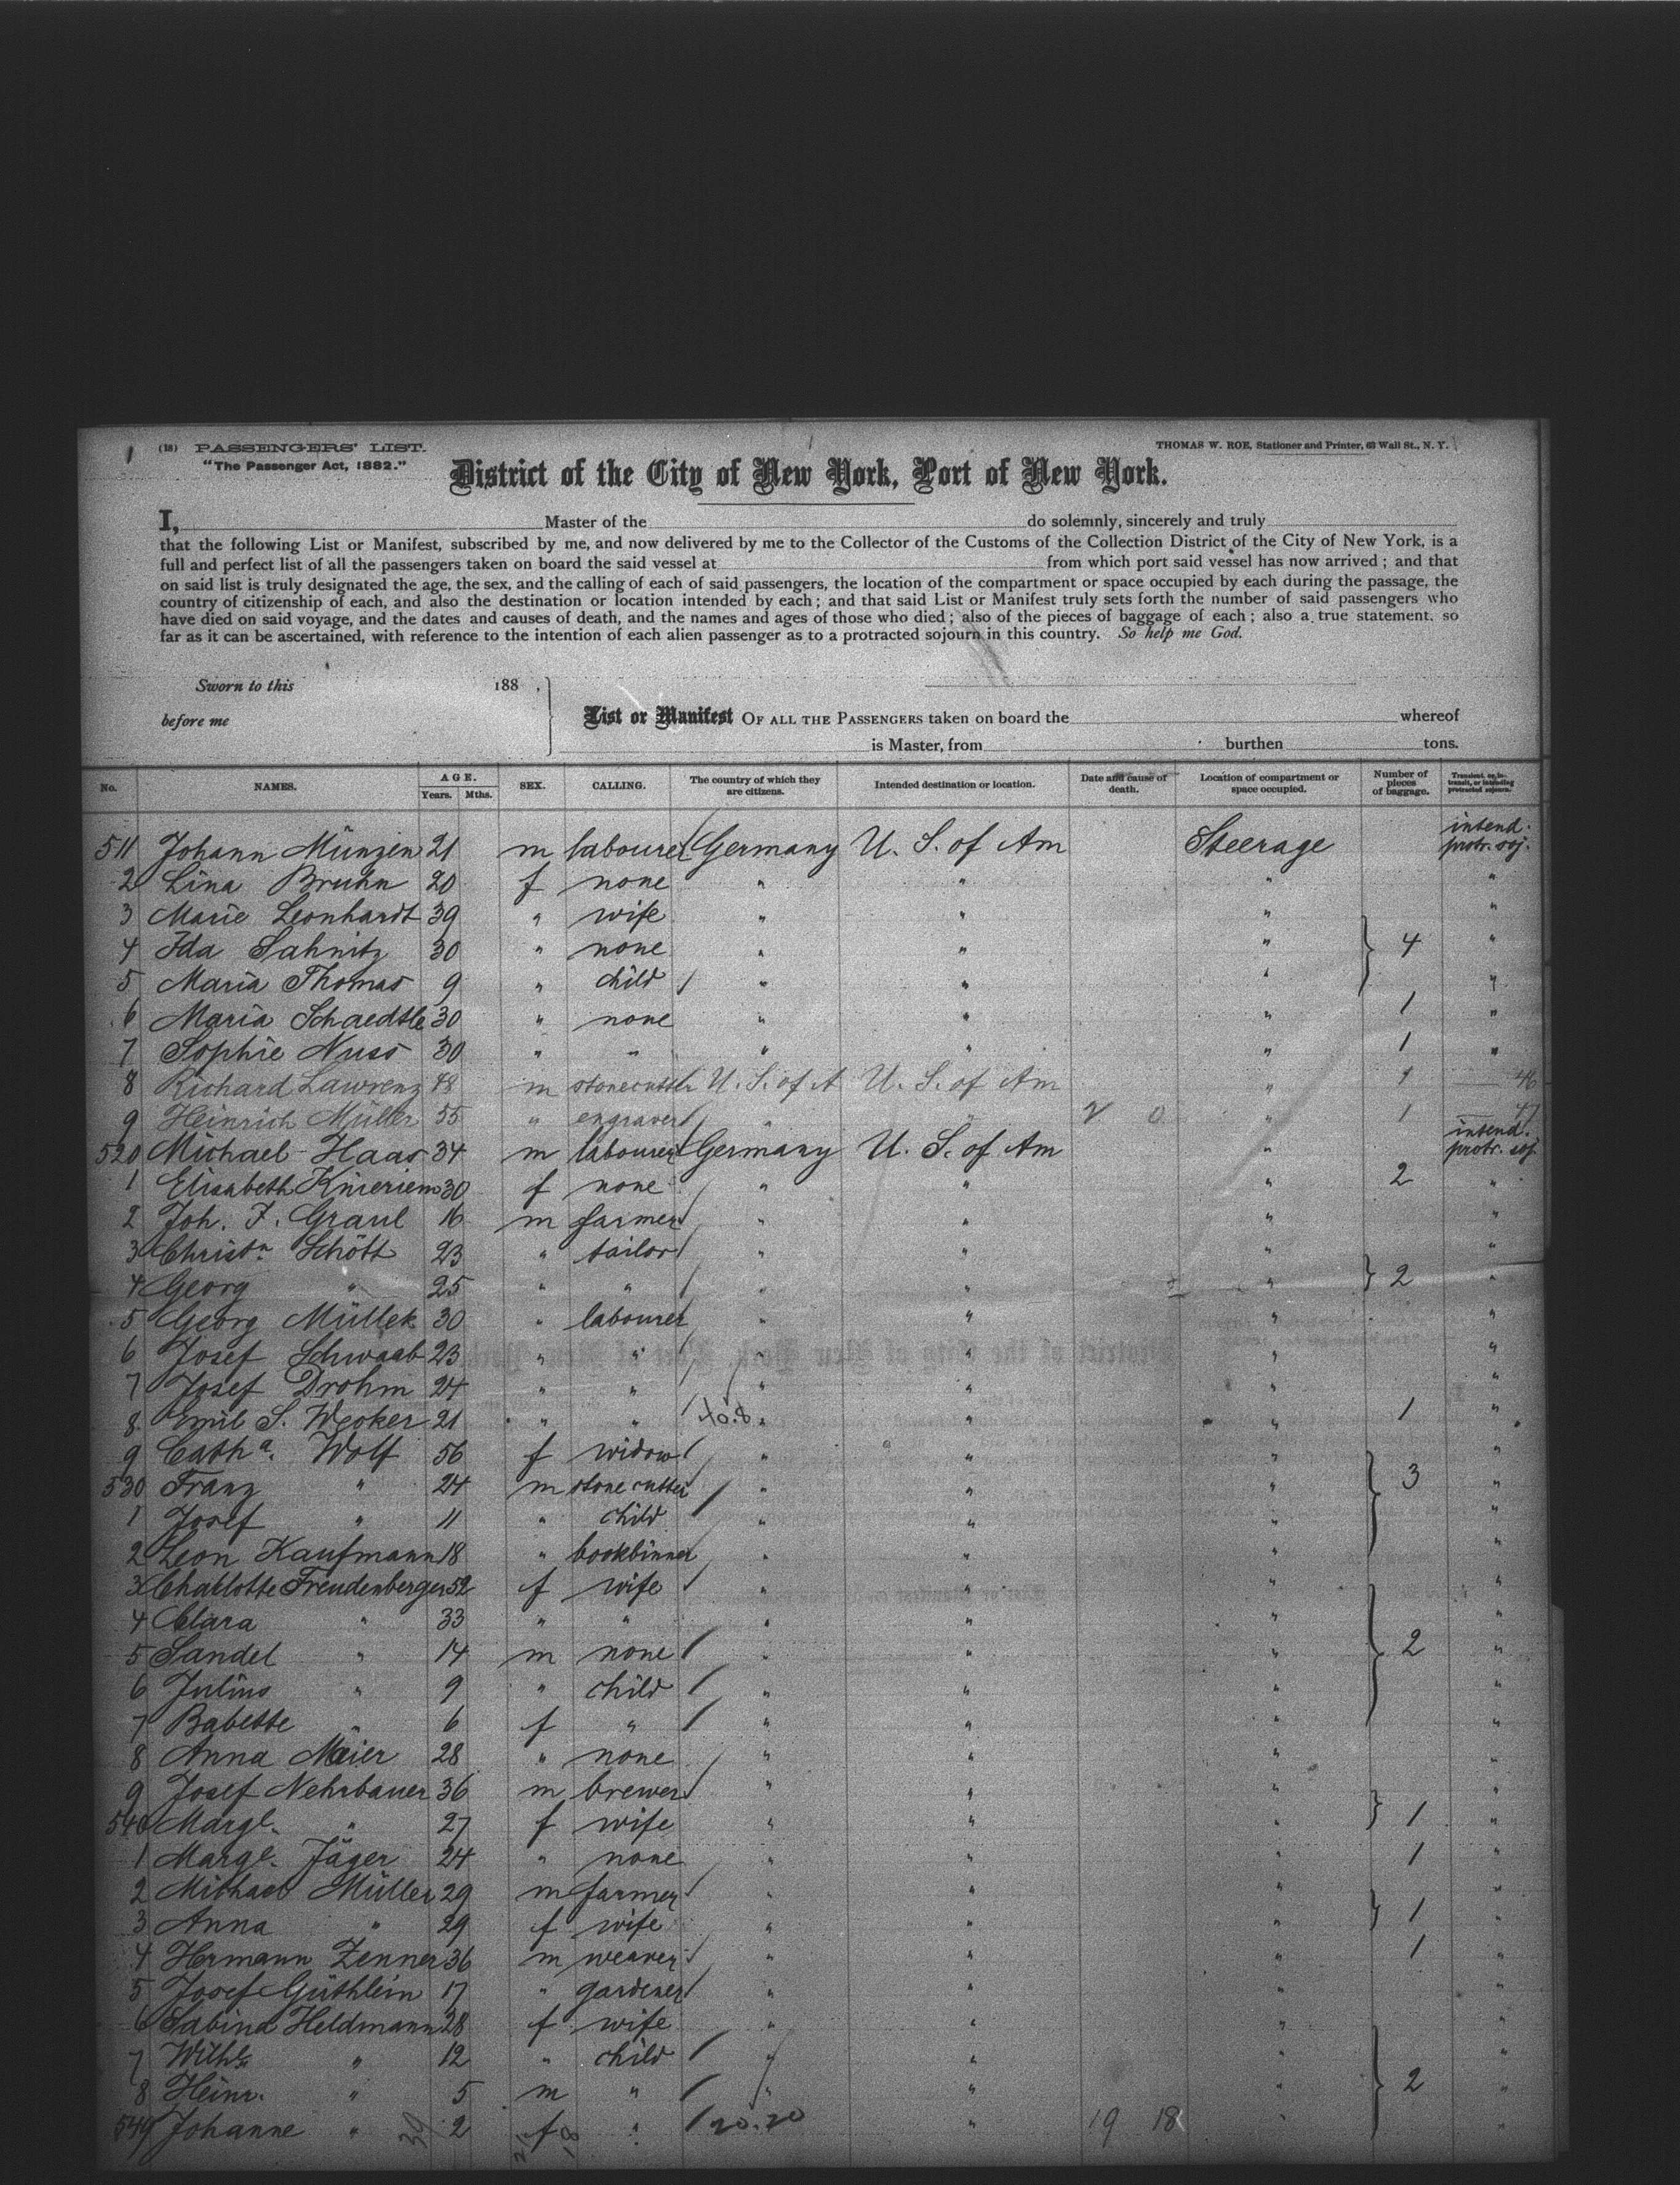 (18) PASSENGERS' LIST.
THOMAS W. ROE, Stationer and Printer, 63 Wall St., N. Y.
"The Passenger Act, 1882."
District of the City of New York, Port of New York.
I, Master of the do solemnly, sincerely and truly
that the following List or Manifest, subscribed by me, and now delivered by me to the Collector of the Customs of the Collection District of the City of New York, is a
full and perfect list of all the passengers taken on board the said vessel at from which port said vessel has now arrived; and that
on said list is truly designated the age, the sex, and the calling of each of said passengers, the location of the compartment or space occupied by each during the passage, the
country of citizenship of each, and also the destination or location intended by each; and that said List or Manifest truly sets forth the number of said passengers who
have died on said voyage, and the dates and causes of death, and the names and ages of those who died; also of the pieces of baggage of each; also a true statement, so
far as it can be ascertained, with reference to the intention of each alien passenger as to a protracted sojourn in this country. So help me God.
Sworn to this 188 .
before me
List or Manifest OF ALL THE PASSENGERS taken on board the whereof
is Master, from burthen tons.
No. NAMES. AGE. Years. Mths. SEX. CALLING. The country of which they are citizens. Intended destination or location. Date and cause of death. Location of compartment or space occupied. Number of pieces of baggage. Transient, or in-transit, or intending protracted sojourn.
511 Johann Münzen 21 m labourer Germany U. S. of Am Steerage intend. protr. soj.
2 Lina Bruhn 20 f none " " " "
3 Marie Leonhardt 39 " wife " " " "
4 Ida Sahnitz 30 " none " " " 4 "
5 Maria Thomas 9 " child " " " "
6 Maria Schaedtle 30 " none " " " 1 "
7 Sophie Nuss 30 " " " " " 1 "
8 Richard Lawrenz 48 m stonecutter U. S. of A U. S. of Am " 1 46
9 Heinrich Müller 55 " engraver " " " 1 47
520 Michael Haas 34 m labourer Germany U. S. of Am " intend. protr. soj.
1 Elisabeth Knieriem 30 f none " " " 2 "
2 Joh. F. Graul 16 m farmer " " " "
3 Christn Schött 23 " tailor " " " "
4 Georg " 25 " " " " " 2 "
5 Georg Müller 30 " labourer " " " "
6 Josef Schwaab 23 " " " " " "
7 Josef Drohm 24 " " " " " "
8 Emil S. Weoker 21 " " 10.8 " " " 1 "
9 Catha. Wolf 56 f widow " " " "
530 Franz " 24 m stone cutter " " " 3 "
1 Josef " 11 " child " " " "
2 Leon Kaufmann 18 " bookbinner " " " "
3 Charlotte Freudenberger 52 f wife " " " "
4 Clara " 33 " " " " " "
5 Sandel " 14 m none " " " 2 "
6 Julius " 9 " child " " " "
7 Babette " 6 f " " " " "
8 Anna Meier 28 " none " " " "
9 Josef Nehrbauer 36 m brewer " " " "
540 Marge. " 27 f wife " " " 1 "
1 Marge. Jäger 24 " none " " " 1 "
2 Michael Müller 29 m farmer " " " "
3 Anna " 29 f wife " " " 1 "
4 Hermann Zenner 36 m weaver " " " 1 "
5 Josef Güthlein 17 " gardener " " " "
6 Sabina Heldmann 28 f wife " " " "
7 Wilhe " 12 " child " " " "
8 Heinr. " 5 m " " " " 2 "
549 Johanne " 2 f " 20.20 " 19 18 " "